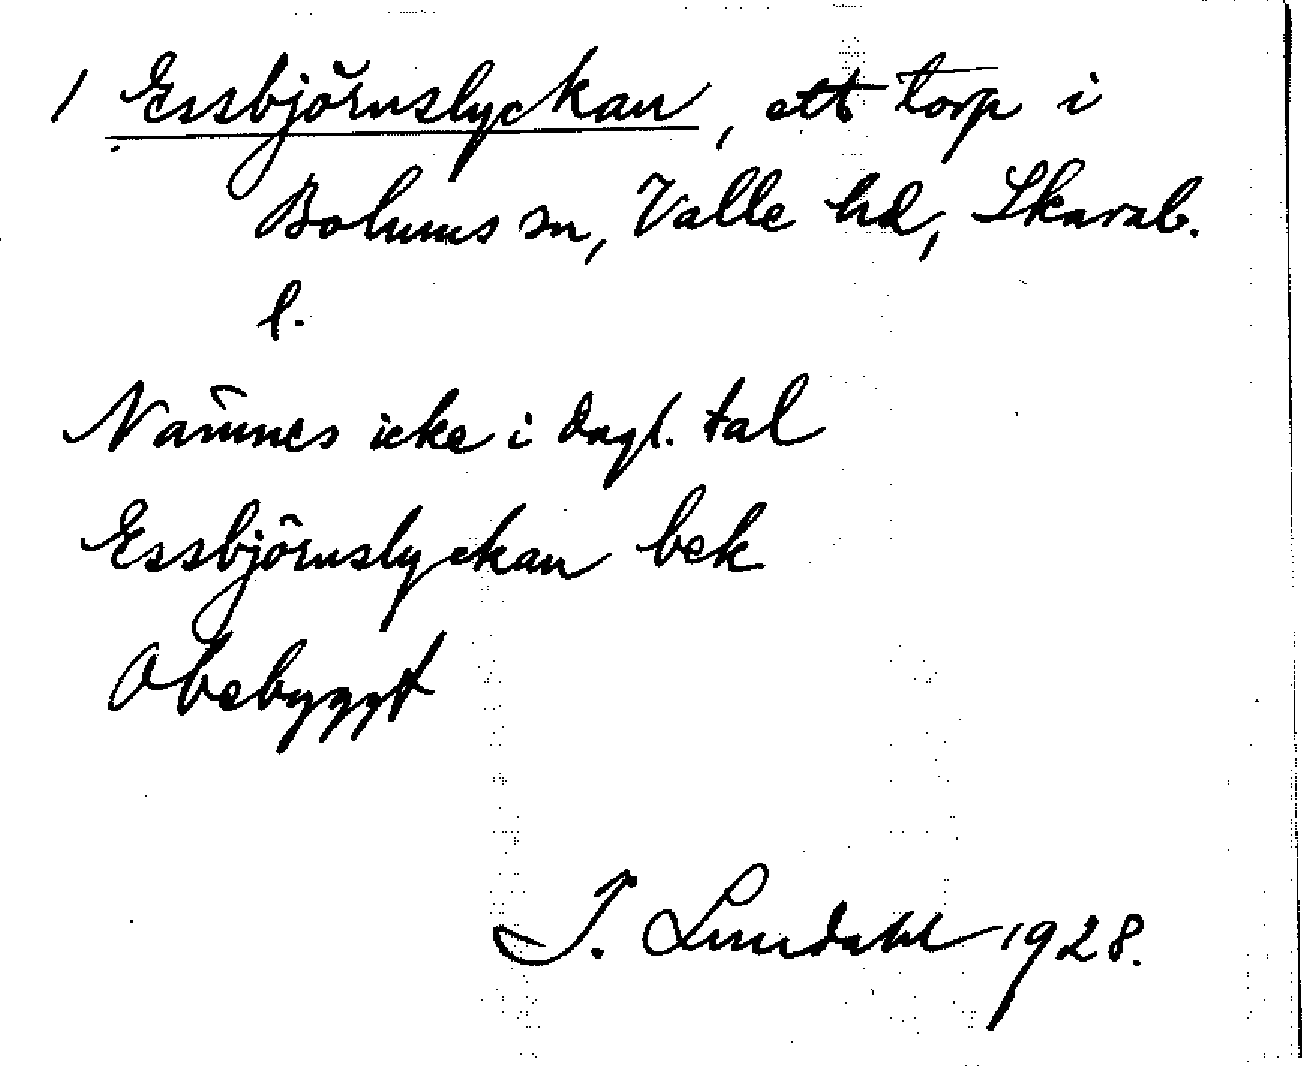 1 Essbjörnslyckan, ett torp i
Bolums sn, Valle hd, Skarab.
l.
Nämnes icke i dagl. tal
Essbjörnslyckan bek
Obebyggt
I. Lundahl 1928.